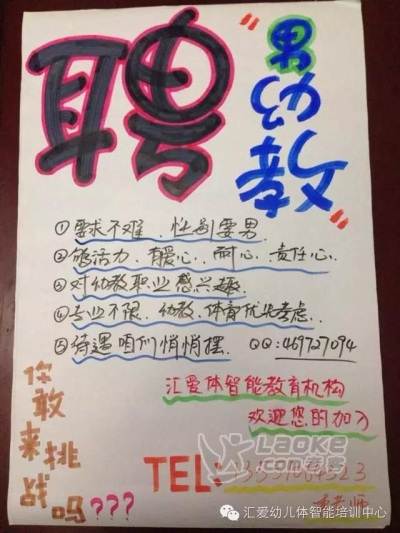 聘
"男幼教"
①要求不难、性别要男
②够活力、有暖心、耐心、责任心、
③对幼教职业感兴趣
④专业不限、幼教、体育优先考虑.
⑤待遇咱们悄悄摆. QQ:469727094
你敢来挑战吗???
汇爱体智能教育机构
欢迎您的加入
TEL:
老师
LAOKE
汇爱幼儿体智能培训中心